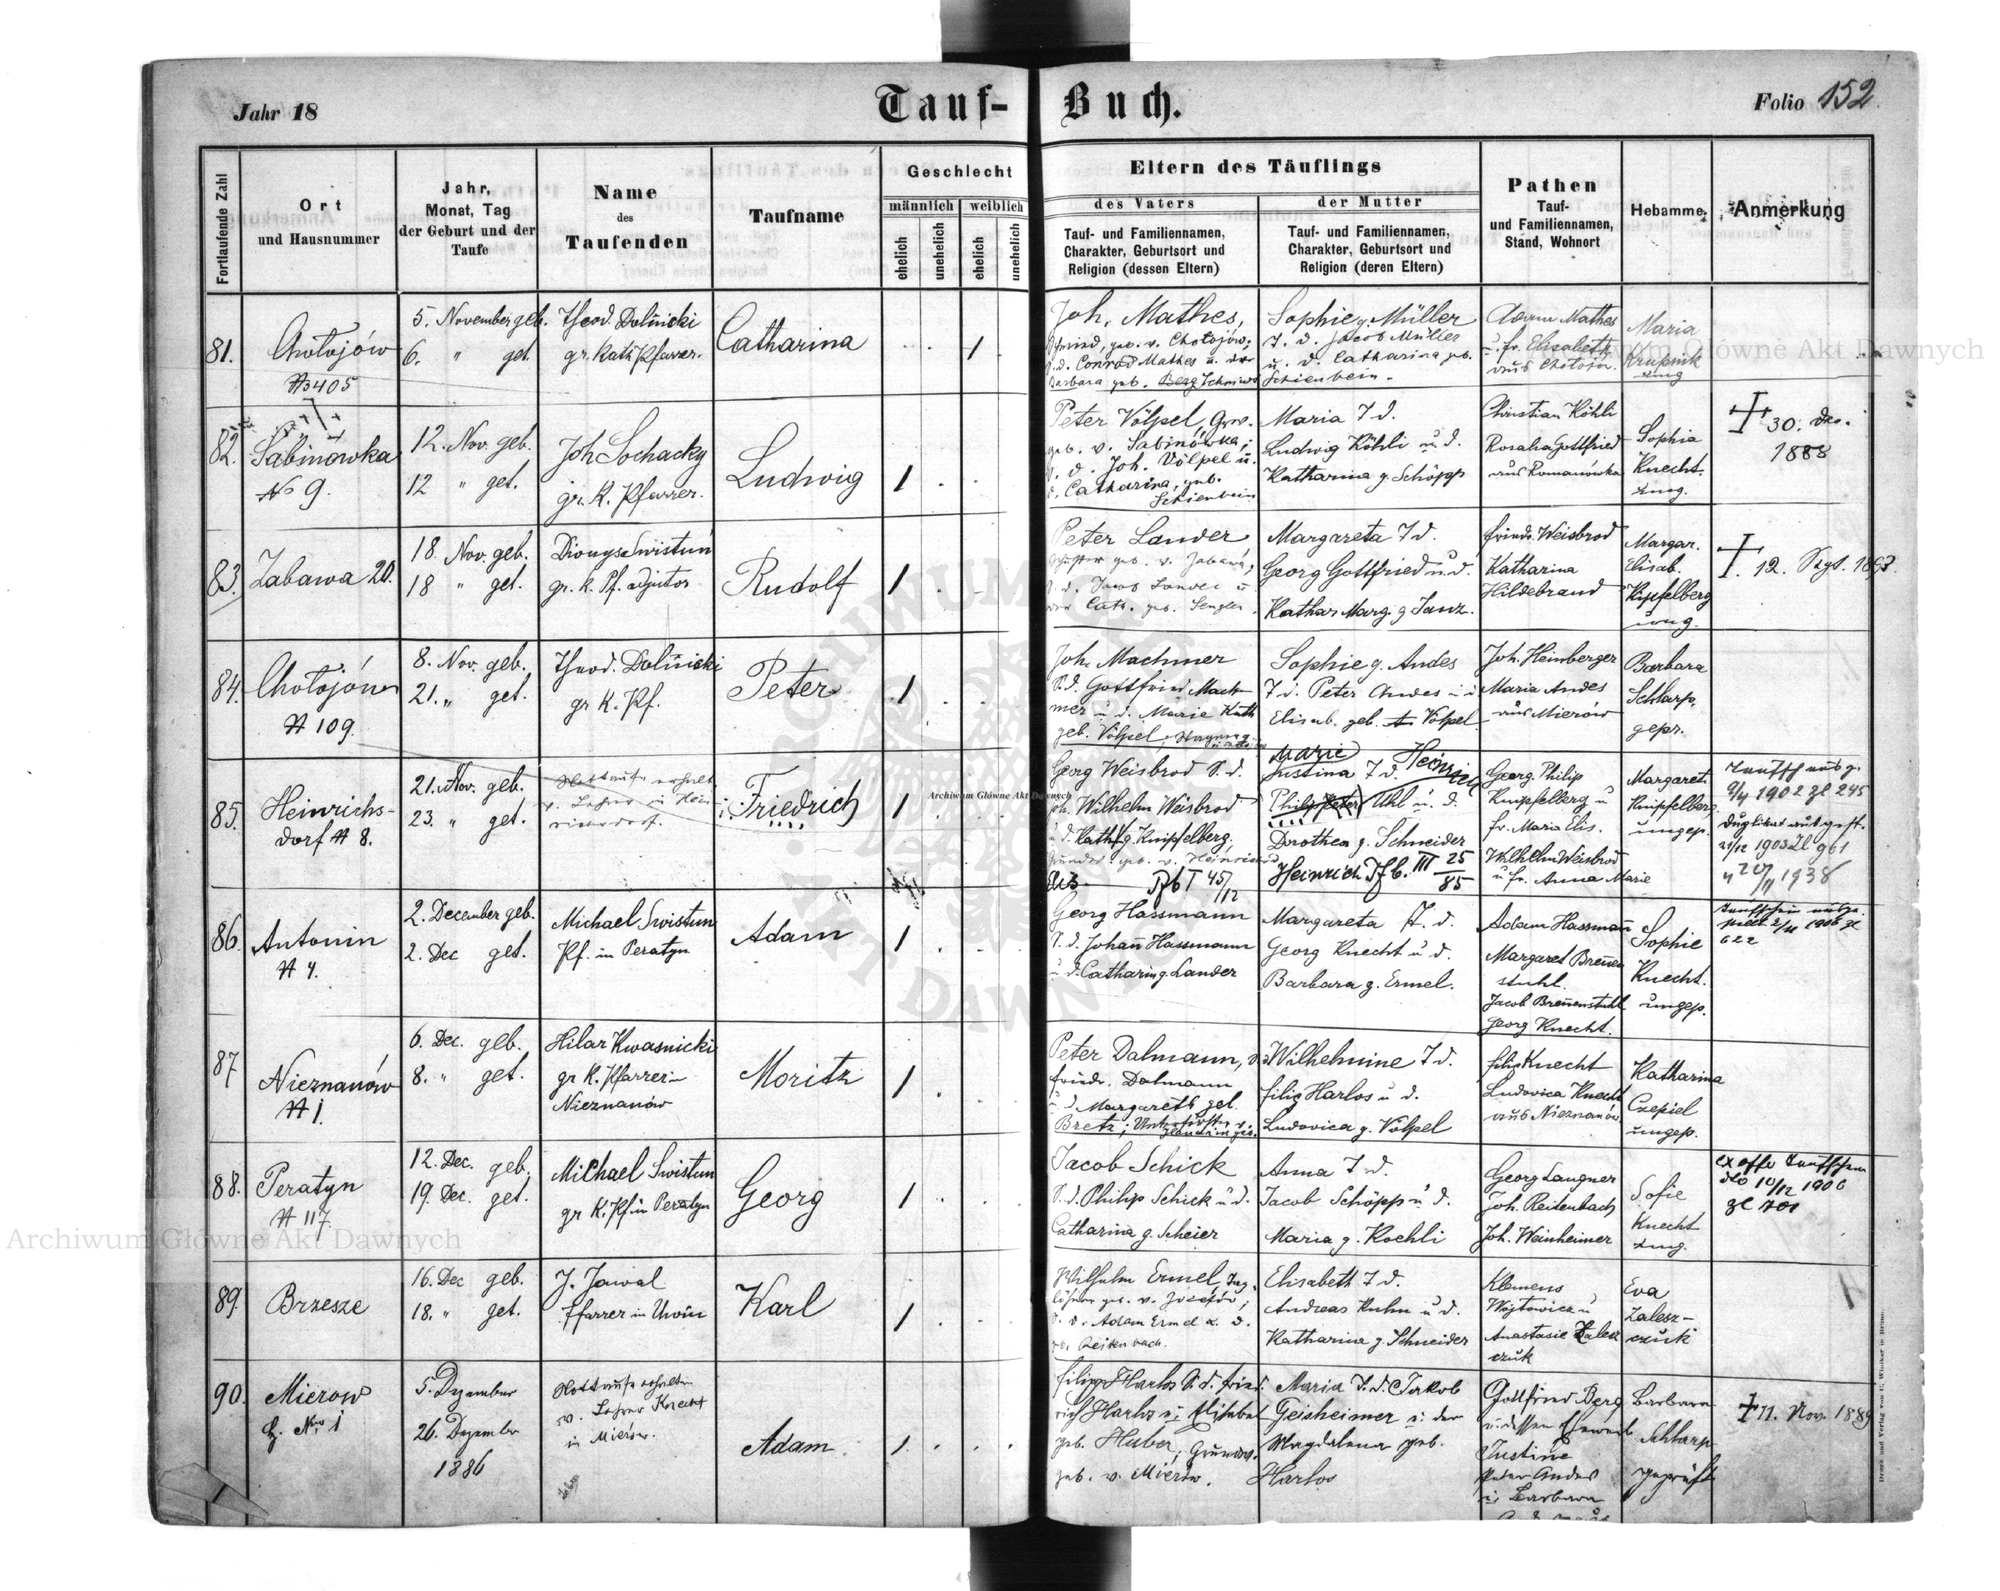 Jahr 18
Tauf-
Buch.
Folio 152.
Fortlaufende Zahl
Ort
und Hausnummer
Jahr,
Monat, Tag
der Geburt und der
Taufe
Name
des
Taufenden
Taufname
Geschlecht
männlich
weiblich
ehelich
unehelich
ehelich
unehelich
Eltern des Täuflings
des Vaters
Tauf- und Familiennamen,
Charakter, Geburtsort und
Religion (dessen Eltern)
der Mutter
Tauf- und Familiennamen,
Charakter, Geburtsort und
Religion (deren Eltern)
Pathen
Tauf-
und Familiennamen,
Stand, Wohnort
Hebamme.
Anmerkung
81.
Chotojów
№ 405
5. November geb.
6. " get.
Theod. Dolnicki
gr. Kath. Pfarrer.
Catharina
1
Joh. Mathes,
geb. v. Chotojów;
S. d. Conrad Mathes u. der
Barbara geb. Berg
Sophie g. Müller
T. d. Jacob Müller
u. d. Catharina geb.
Schienbein.
Adam Mathes
u. fr. Elisabeth
aus Chotojów.
Maria
Krupnik
ung.
82.
Sabinówka
No 9.
12. Nov. geb.
12 " get.
Joh Sochacky
gr. K. Pfarrer.
Ludwig
1
Peter Völpel, Grw.
geb. v. Sabinówka;
S. d. Joh. Völpel u.
d. Catharina, geb.
Schienbein
Maria T d.
Ludwig Köhli u. d.
Katharina g. Schöpp
Christian Köhli
Rosalia Gottfried
aus Romanówka
Sophia
Knecht.
ung.
30. Dez.
1888
83.
Zabawa 20.
18 Nov. geb.
18 " get.
Dionys Swistuń
gr. K. Pf. adjutor
Rudolf
1
Peter Lander
geb. v. Zabawa,
S. d. Jacob Lander u
der Cath. geb. Sengler.
Margareta T d.
Georg Gottfried u. d.
Kathar Marg. g Janz.
Friedr. Weisbrod
Katharina
Hildebrand
Margar.
Elisab.
Kipfelberg
ung.
12. Sept. 1893.
84.
Chotojów
№ 109.
8. Nov. geb.
21. " get.
Theod. Dolnicki
gr K. Pf.
Peter
1
Joh. Machmer
S. d. Gottfried Mach-
mer u. d. Marie Kath
geb. Völpel,
Sophie g. Andes
T d. Peter Andes u d
Elisab. geb. Völpel
Joh. Heimberger
Maria Andes
aus Mierów
Barbara
Schlarp,
gepr.
85.
Heinrichs-
dorf № 8.
21. Nov. geb.
23. " get.
Nottaufe erhalt.
v. Lehrer in Hein-
richsdorf.
Friedrich
1
Georg Weisbrod S. d.
Joh. Wilhelm Weisbrod
u. d. Kath g. Knipfelberg.
geb. v. Heinrichsd
Pfb I 45/12
Marie
Justina T d. Heinrich
Philip Peter Uhl u. d.
Dorothea g. Schneider
Heinrich Pfb. III 25/85
Georg Philip
Knipfelberg u
fr. Maria Elis.
Wilhelm Weisbrod
u fr. Anna Marie
Margaret.
Knipfelberg
ungep.
Taufsch ausg.
9/4 1902 zl 245
Duplikat ausgest.
21/12 1903 Zl 961
" 20/11 1938
86.
Antonin
№ 4.
2. December geb.
2. Dec get.
Michael Swistun
Pf. in Peratyn
Adam
1
Georg Hassmann
S. d. Johann Hassmann
u d. Catharina g. Lander
Margareta T. d.
Georg Knecht u d.
Barbara g. Ermel.
Adam Hassmann
Margaret Brennen
stuhl.
Jacob Brennenstuhl
Georg Knecht.
Sophie
Knecht.
ungep.
Taufschein
2/4 1906 zl
622
87
Nieznanów
№ 1.
6. Dec. geb.
8. " get.
Hilar Kwasnicki
gr K. Pfarrer in
Nieznanów
Moritz
1
Peter Dalmann, S. d
Friedr. Dalmann
u. d. Margareth geb.
Bretz;
Wilhelmine T d.
Filip Harlos u d.
Ludovica g. Völpel
Filip Knecht
Ludovica Knecht
aus Nieznanów
Katharina
Czepiel
ungep.
88.
Peratyn
№ 117.
12. Dec. geb.
19. Dec. get.
Michael Swistun
gr K. Pf. in Peratyn
Georg
1
Jacob Schick
S. d. Philip Schick u d.
Catharina g. Scheier
Anna T d.
Jacob Schöpp u d.
Maria g. Koehli
Georg Langner
Joh. Reitenbach
Joh. Weinheimer
Sofie
Knecht
ung.
ex offo Taufschein
dto 10/12 1906
zl 701
89.
Brzesze
16. Dec geb.
18. " get.
J. Jawal
Pfarrer in Uwin
Karl
1
Wilhelm Ermel, Tag-
löhner geb. v. Józefów;
S. d. Adam Ermel u. d.
geb. Reitenbach.
Elisabeth T d.
Andreas Kuhn u d.
Katharina g. Schneider
Klemens
Wojtowicz u
Anastasie Zalesz
czuk
Eva
Zalesz-
czuk
90.
Mierow
H. Nro 1
5. Dezember
26. Dezember
1886
Nottaufe erhalten
v. Lehrer Knecht
in Mierów.
Adam.
1.
Filipp Harlos S. d. Fried.
rich Harlos u. Elisabet
geb. Huber, Grundw.
geb. v. Mierów.
Maria T. d. Jakob
Geisheimer u. der
Magdalena geb.
Harlos
Gottfried Berg
u. dessen Eheweib
Justine
Peter Andes
u. Barbara
Barbara
Schlarp
geprüft
11. Nov. 1889
Druck und Verlag von C. Winiker in Brünn.
Archiwum Główne Akt Dawnych
Archiwum Główne Akt Dawnych
Archiwum Główne Akt Dawnych